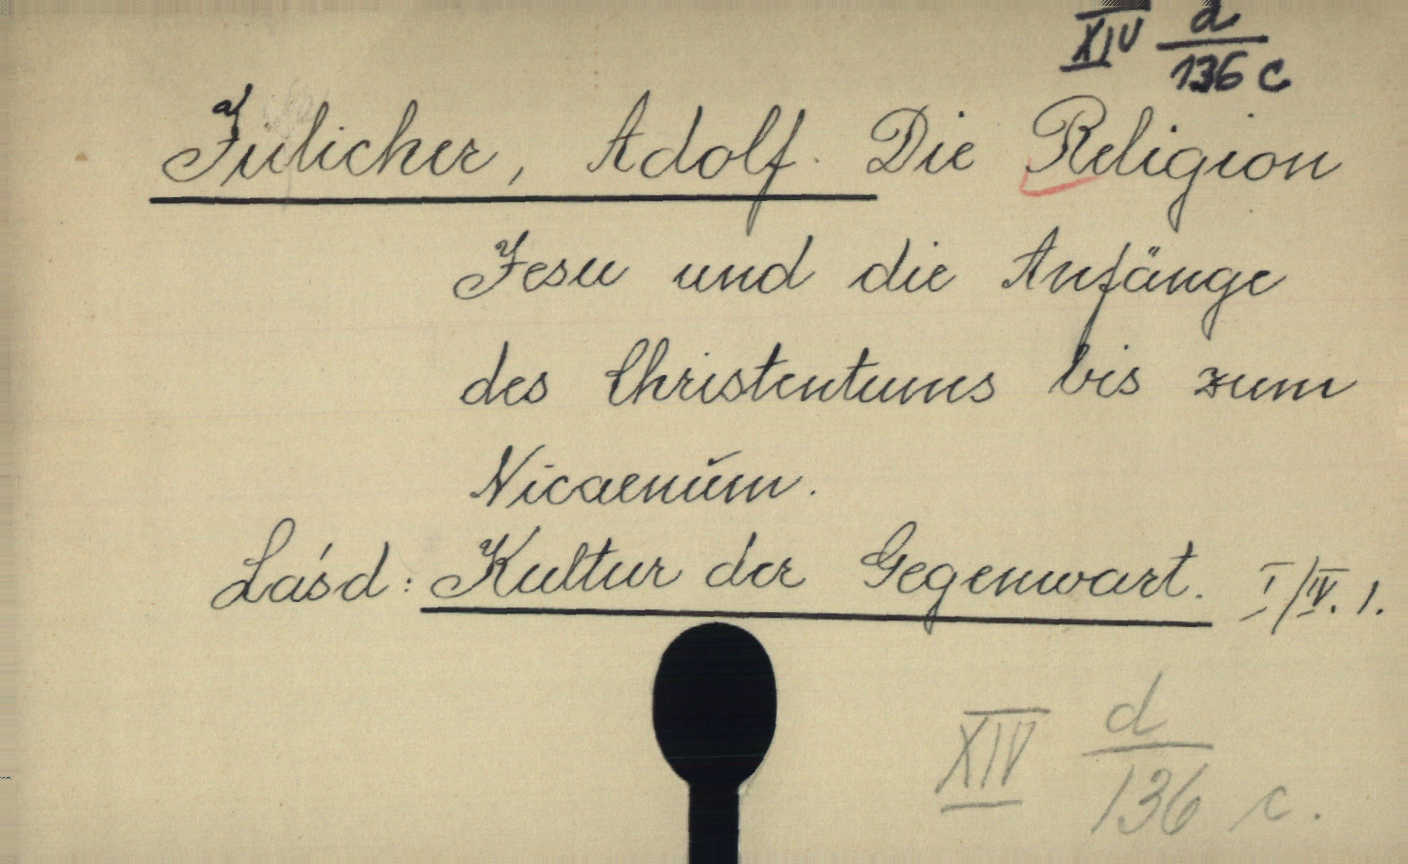 XIV d/136 c
Jülicher, Adolf. Die Religion
Jesu und die Anfänge
des Christentums bis zum
Nicaenum.
Lásd: Kultur der Gegenwart. I/IV. 1.
XIV d/136 c.